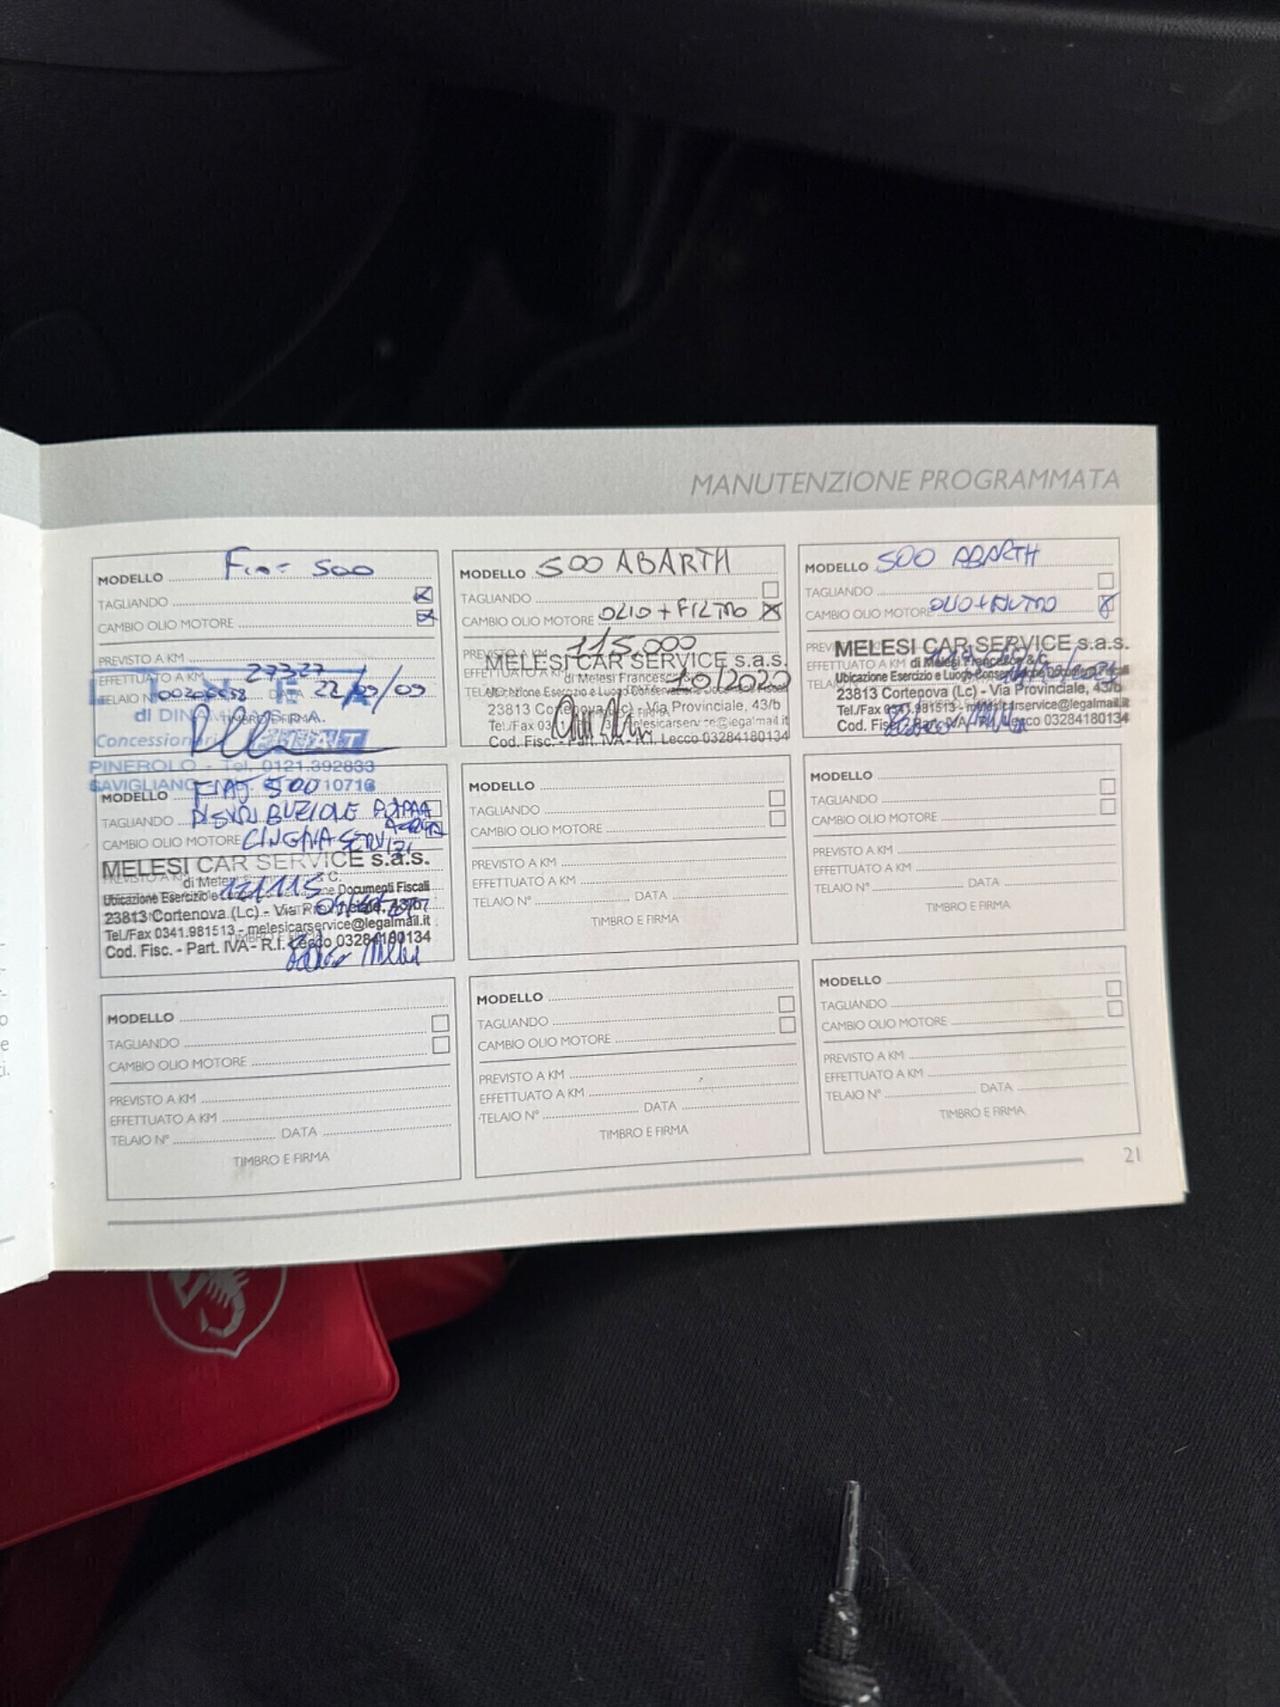 MANUTENZIONE PROGRAMMATA
MODELLO Fiat 500
TAGLIANDO
CAMBIO OLIO MOTORE
PREVISTO A KM
EFFETTUATO A KM 27327
TELAIO N° DATA 22/09/09
di DINA
TIMBRO E FIRMA
Concessionari FIAT
PINEROLO - Tel. 0121.392833
SAVIGLIANO 10716
MODELLO 500 ABARTH
TAGLIANDO
CAMBIO OLIO MOTORE OLIO + FILTRO
115.000
MELESI CAR SERVICE s.a.s.
di Melesi Francesco
10/2020
Ubicazione Esercizio e Luogo Conservazione Documenti Fiscali
23813 Cortenova (Lc) - Via Provinciale, 43/b
Tel./Fax 03 melesicarservice@legalmail.it
Cod. Fisc. - Part. IVA - R.I. Lecco 03284180134
MODELLO 500 ABARTH
TAGLIANDO
CAMBIO OLIO MOTORE OLIO + FILTRO
MELESI CAR SERVICE s.a.s.
EFFETTUATO A KM di Melesi Francesco & C.
Ubicazione Esercizio e Luogo Conservazione Documenti Fiscali
23813 Cortenova (Lc) - Via Provinciale, 43/b
Tel./Fax 0341.981513 - melesicarservice@legalmail.it
Cod. Fisc. - Part. IVA - R.I. Lecco 03284180134
MODELLO FIAT 500
TAGLIANDO DISTRIBUZIONE POMPA
ACQUA
CAMBIO OLIO MOTORE CINGHIA SERVIZI
MELESI CAR SERVICE s.a.s.
di Melesi C.
121115
Ubicazione Esercizio e Documenti Fiscali
23813 Cortenova (Lc) - Via Provinciale, 43/b
Tel./Fax 0341.981513 - melesicarservice@legalmail.it
Cod. Fisc. - Part. IVA - R.I. Lecco 03284180134
MODELLO
TAGLIANDO
CAMBIO OLIO MOTORE
PREVISTO A KM
EFFETTUATO A KM
TELAIO N° DATA
TIMBRO E FIRMA
MODELLO
TAGLIANDO
CAMBIO OLIO MOTORE
PREVISTO A KM
EFFETTUATO A KM
TELAIO N° DATA
TIMBRO E FIRMA
MODELLO
TAGLIANDO
CAMBIO OLIO MOTORE
PREVISTO A KM
EFFETTUATO A KM
TELAIO N° DATA
TIMBRO E FIRMA
MODELLO
TAGLIANDO
CAMBIO OLIO MOTORE
PREVISTO A KM
EFFETTUATO A KM
TELAIO N° DATA
TIMBRO E FIRMA
MODELLO
TAGLIANDO
CAMBIO OLIO MOTORE
PREVISTO A KM
EFFETTUATO A KM
TELAIO N° DATA
TIMBRO E FIRMA
21